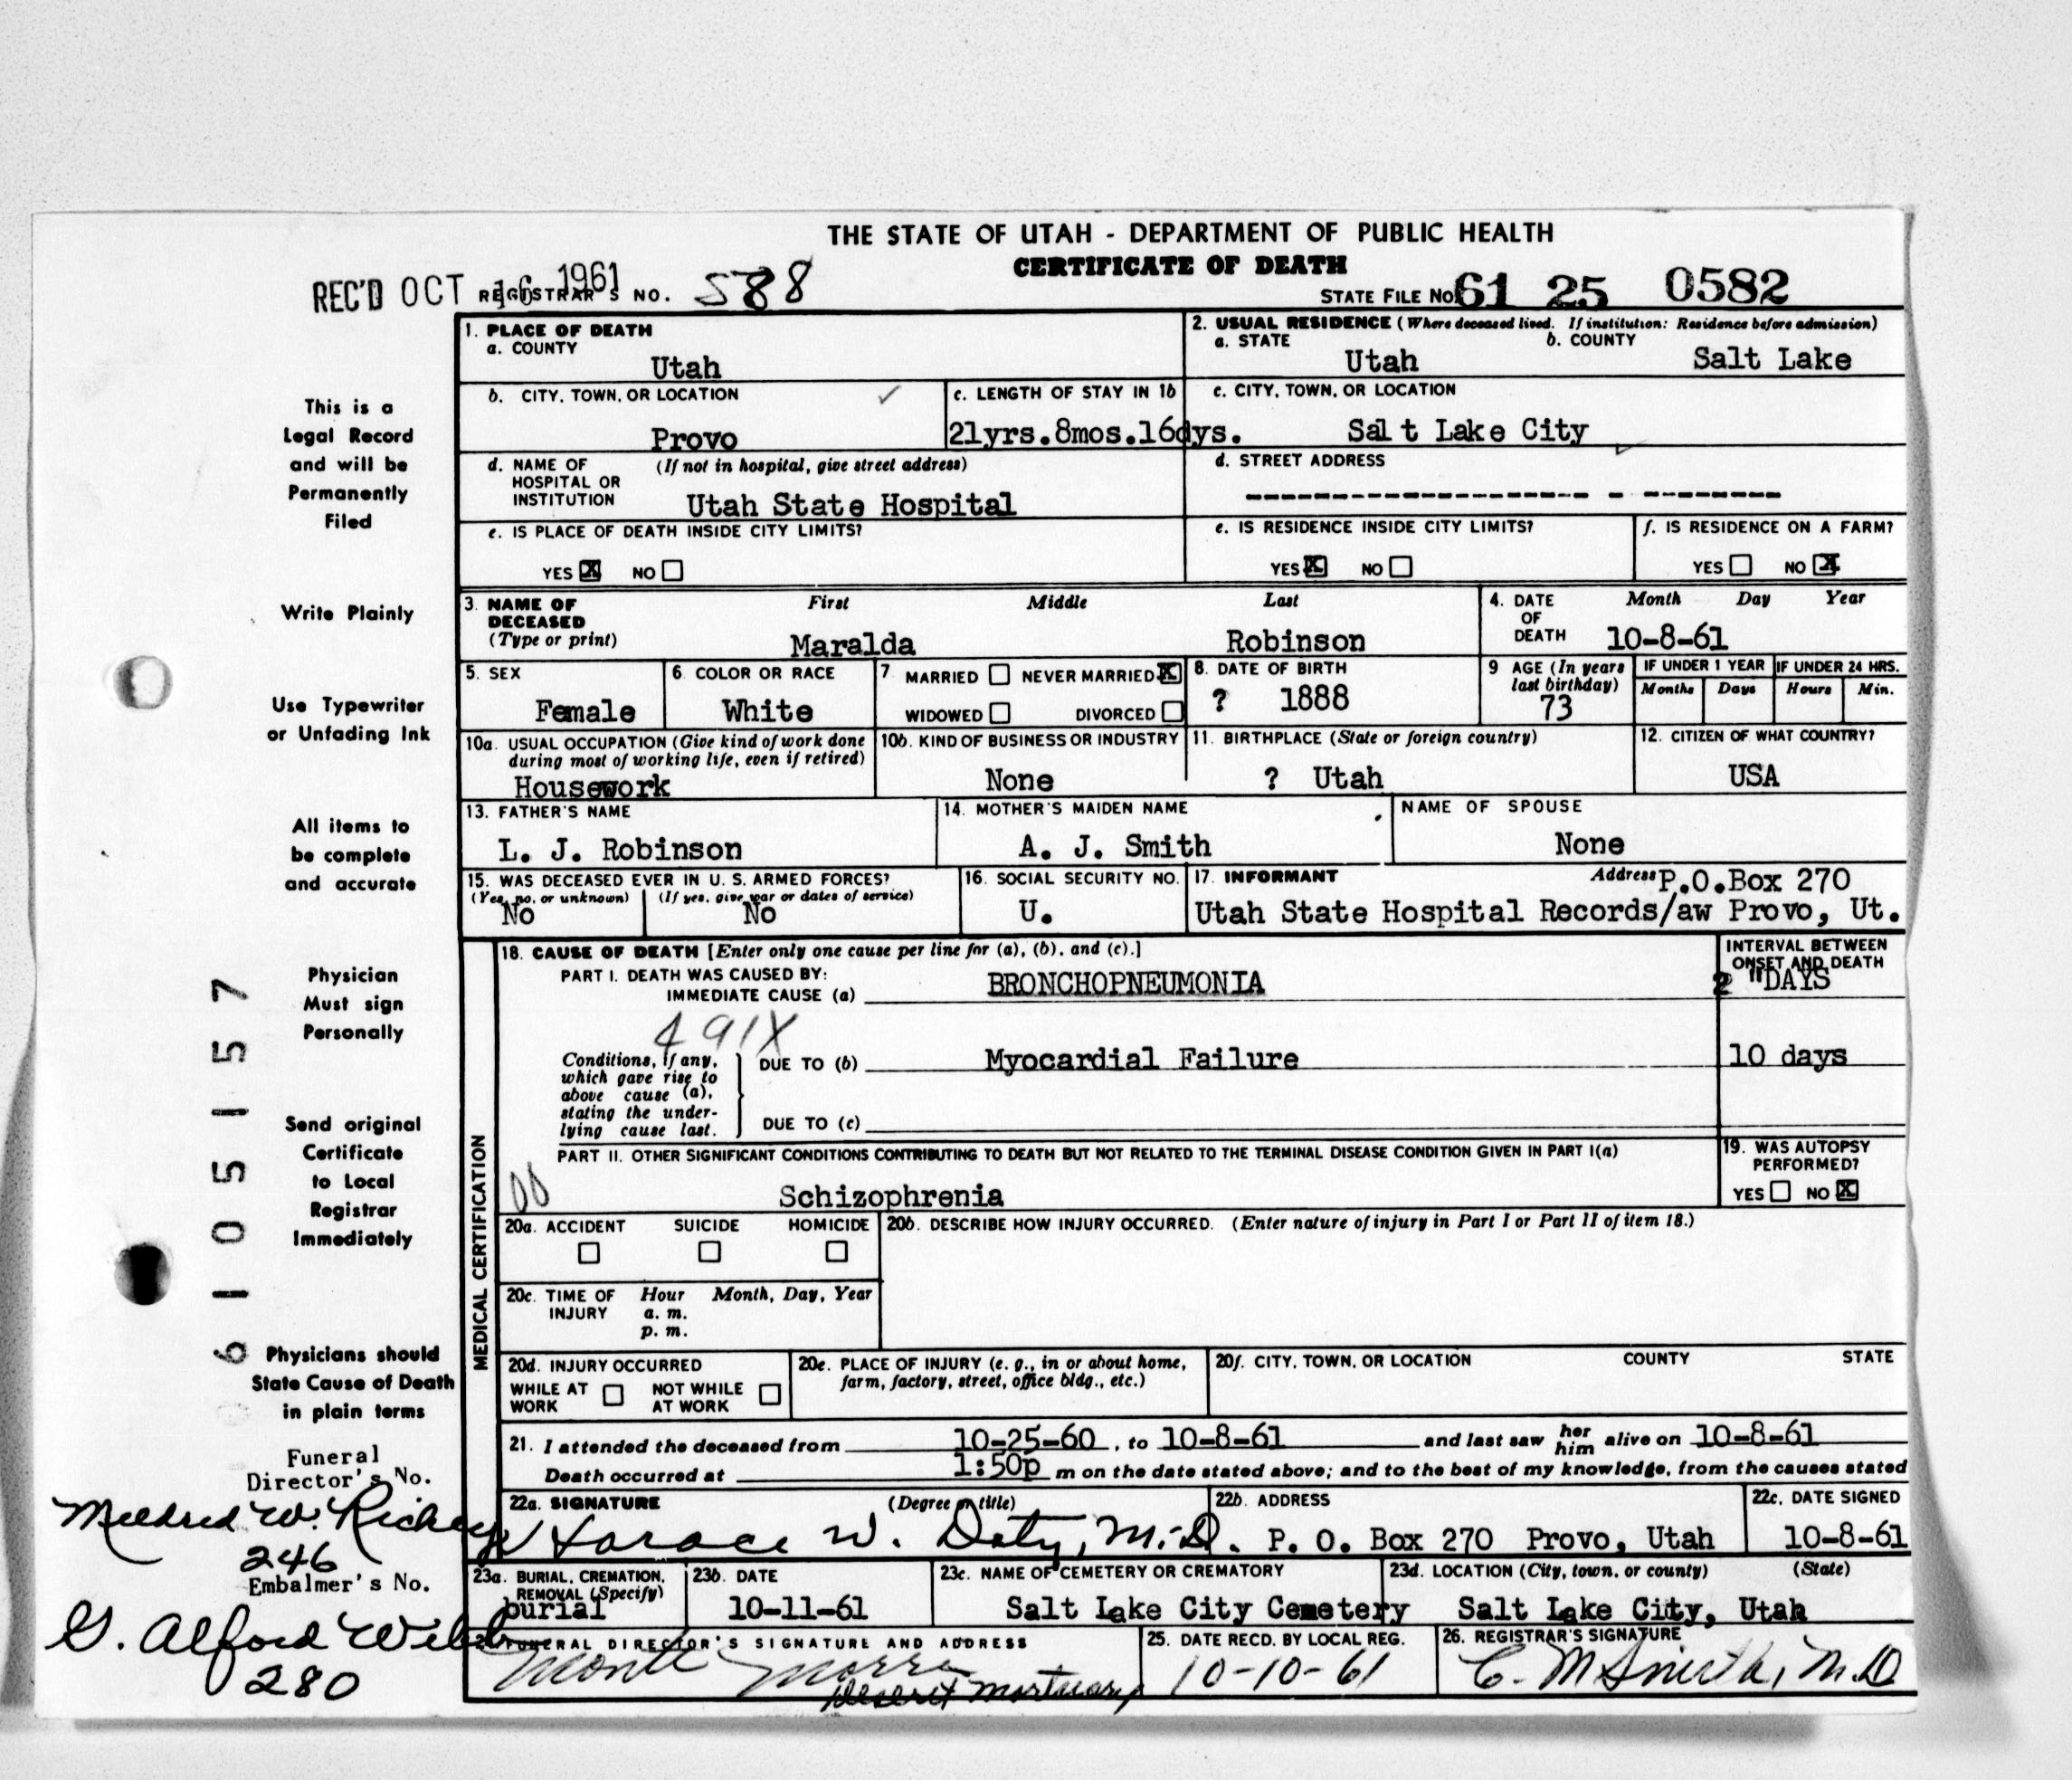 THE STATE OF UTAH - DEPARTMENT OF PUBLIC HEALTH
CERTIFICATE OF DEATH
REC'D OCT 16 1961 REGISTRAR'S NO. 588
STATE FILE NO. 61 25 0582
1. PLACE OF DEATH
a. COUNTY
Utah
2. USUAL RESIDENCE (Where deceased lived. If institution: Residence before admission)
a. STATE b. COUNTY
Utah Salt Lake
b. CITY, TOWN, OR LOCATION
Provo
c. LENGTH OF STAY IN 1b
21yrs.8mos.16dys.
c. CITY, TOWN, OR LOCATION
Salt Lake City
d. NAME OF HOSPITAL OR INSTITUTION (If not in hospital, give street address)
Utah State Hospital
d. STREET ADDRESS
--------------------------
e. IS PLACE OF DEATH INSIDE CITY LIMITS?
YES X NO
e. IS RESIDENCE INSIDE CITY LIMITS?
YES X NO
f. IS RESIDENCE ON A FARM?
YES NO X
3. NAME OF DECEASED (Type or print)
First Middle Last
Maralda Robinson
4. DATE OF DEATH Month Day Year
10-8-61
5. SEX
Female
6. COLOR OR RACE
White
7. MARRIED NEVER MARRIED X
WIDOWED DIVORCED
8. DATE OF BIRTH
? 1888
9 AGE (In years last birthday)
73
IF UNDER 1 YEAR IF UNDER 24 HRS.
Months Days Hours Min.
10a. USUAL OCCUPATION (Give kind of work done during most of working life, even if retired)
Housework
10b. KIND OF BUSINESS OR INDUSTRY
None
11. BIRTHPLACE (State or foreign country)
? Utah
12. CITIZEN OF WHAT COUNTRY?
USA
13. FATHER'S NAME
L. J. Robinson
14. MOTHER'S MAIDEN NAME
A. J. Smith
NAME OF SPOUSE
None
15. WAS DECEASED EVER IN U. S. ARMED FORCES?
(Yes, no, or unknown) (If yes, give war or dates of service)
No No
16. SOCIAL SECURITY NO.
U.
17. INFORMANT Address P.O.Box 270
Utah State Hospital Records/aw Provo, Ut.
MEDICAL CERTIFICATION
18. CAUSE OF DEATH [Enter only one cause per line for (a), (b), and (c).]
PART I. DEATH WAS CAUSED BY:
IMMEDIATE CAUSE (a) BRONCHOPNEUMONIA
INTERVAL BETWEEN ONSET AND DEATH
2 "DAYS
491X
Conditions, if any, which gave rise to above cause (a), stating the underlying cause last.
DUE TO (b) Myocardial Failure
10 days
DUE TO (c)
PART II. OTHER SIGNIFICANT CONDITIONS CONTRIBUTING TO DEATH BUT NOT RELATED TO THE TERMINAL DISEASE CONDITION GIVEN IN PART I(a)
00
Schizophrenia
19. WAS AUTOPSY PERFORMED?
YES NO X
20a. ACCIDENT SUICIDE HOMICIDE
20b. DESCRIBE HOW INJURY OCCURRED. (Enter nature of injury in Part I or Part II of item 18.)
20c. TIME OF INJURY Hour Month, Day, Year
a. m.
p. m.
20d. INJURY OCCURRED
WHILE AT WORK NOT WHILE AT WORK
20e. PLACE OF INJURY (e. g., in or about home, farm, factory, street, office bldg., etc.)
20f. CITY, TOWN, OR LOCATION COUNTY STATE
21. I attended the deceased from 10-25-60, to 10-8-61 and last saw her him alive on 10-8-61
Death occurred at 1:50p m on the date stated above; and to the best of my knowledge, from the causes stated
22a. SIGNATURE (Degree or title)
Horace W. Doty, M.D.
22b. ADDRESS
P. O. Box 270 Provo, Utah
22c. DATE SIGNED
10-8-61
23a. BURIAL, CREMATION, REMOVAL (Specify)
burial
23b. DATE
10-11-61
23c. NAME OF CEMETERY OR CREMATORY
Salt Lake City Cemetery
23d. LOCATION (City, town, or county) (State)
Salt Lake City, Utah
FUNERAL DIRECTOR'S SIGNATURE AND ADDRESS
Deseret Mortuary
25. DATE RECD. BY LOCAL REG.
10-10-61
26. REGISTRAR'S SIGNATURE
C. M Smith, M.D
This is a
Legal Record
and will be
Permanently
Filed
Write Plainly
Use Typewriter
or Unfading Ink
All items to
be complete
and accurate
Physician
Must sign
Personally
Send original
Certificate
to Local
Registrar
Immediately
Physicians should
State Cause of Death
in plain terms
6105157
Funeral
Director's No.
Mildred W. Richey
246
Embalmer's No.
G. Alford
280